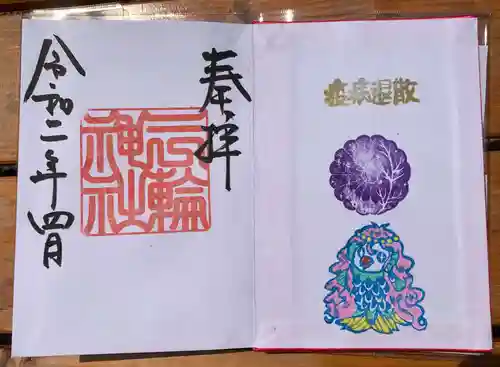 奉拝
三輪
神社
令和二年四月
疫病退散